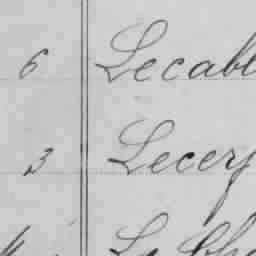 6 Lecabl
3 Lecerf